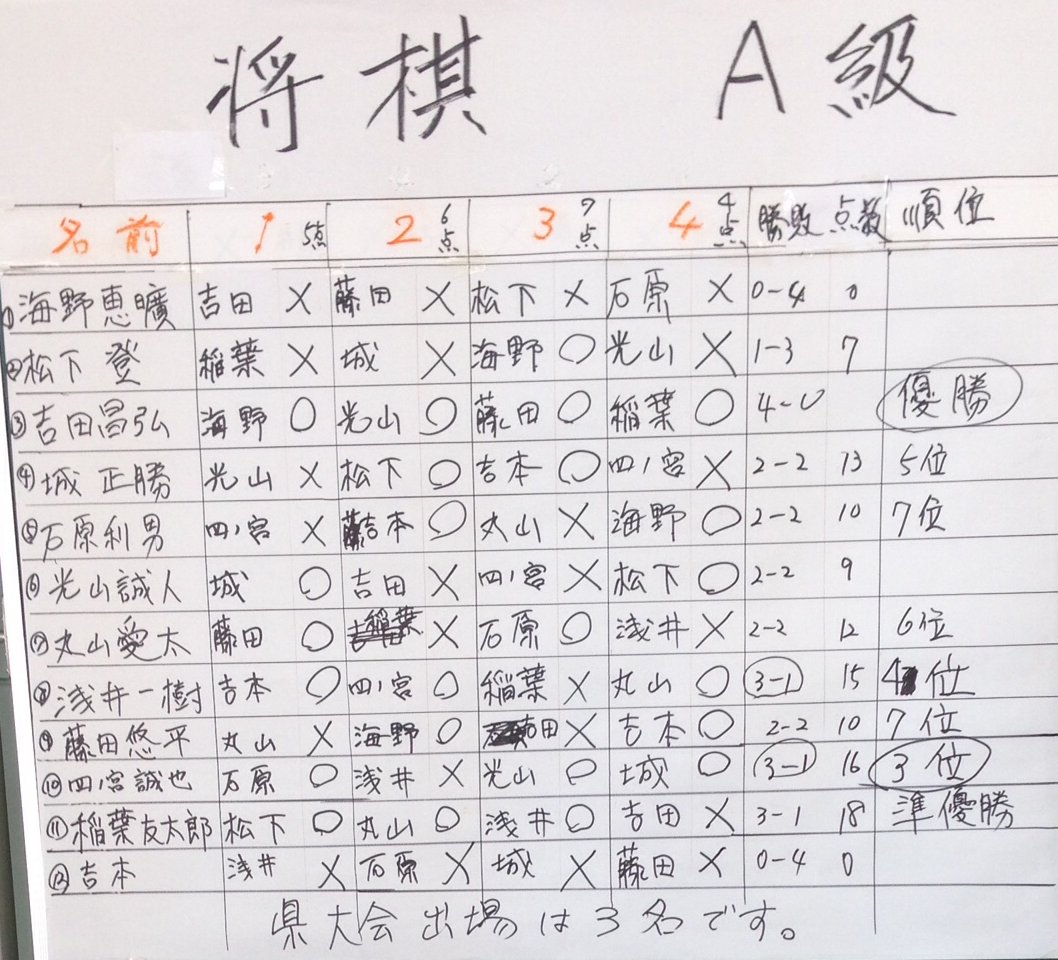 将棋 A級
名前 1 5点 2 6点 3 7点 4 4点 勝敗 点数 順位
① 海野恵曠 吉田 × 藤田 × 松下 × 石原 × 0-4 0
② 松下 登 稲葉 × 城 × 海野 ○ 光山 × 1-3 7
③ 吉田昌弘 海野 ○ 光山 ○ 藤田 ○ 稲葉 ○ 4-0 優勝
④ 城 正勝 光山 × 松下 ○ 吉本 ○ 四ノ宮 × 2-2 13 5位
⑤ 石原利男 四ノ宮 × 吉本 ○ 丸山 × 海野 ○ 2-2 10 7位
⑥ 光山誠人 城 ○ 吉田 × 四ノ宮 × 松下 ○ 2-2 9
⑦ 丸山愛太 藤田 ○ 稲葉 × 石原 ○ 浅井 × 2-2 12 6位
⑧ 浅井一樹 吉本 ○ 四ノ宮 ○ 稲葉 × 丸山 ○ 3-1 15 4位
⑨ 藤田悠平 丸山 × 海野 ○ 吉田 × 吉本 ○ 2-2 10 7位
⑩ 四ノ宮誠也 石原 ○ 浅井 × 光山 ○ 城 ○ 3-1 16 3位
⑪ 稲葉友太郎 松下 ○ 丸山 ○ 浅井 ○ 吉田 × 3-1 18 準優勝
⑫ 吉本 浅井 × 石原 × 城 × 藤田 × 0-4 0
県大会出場は3名です。